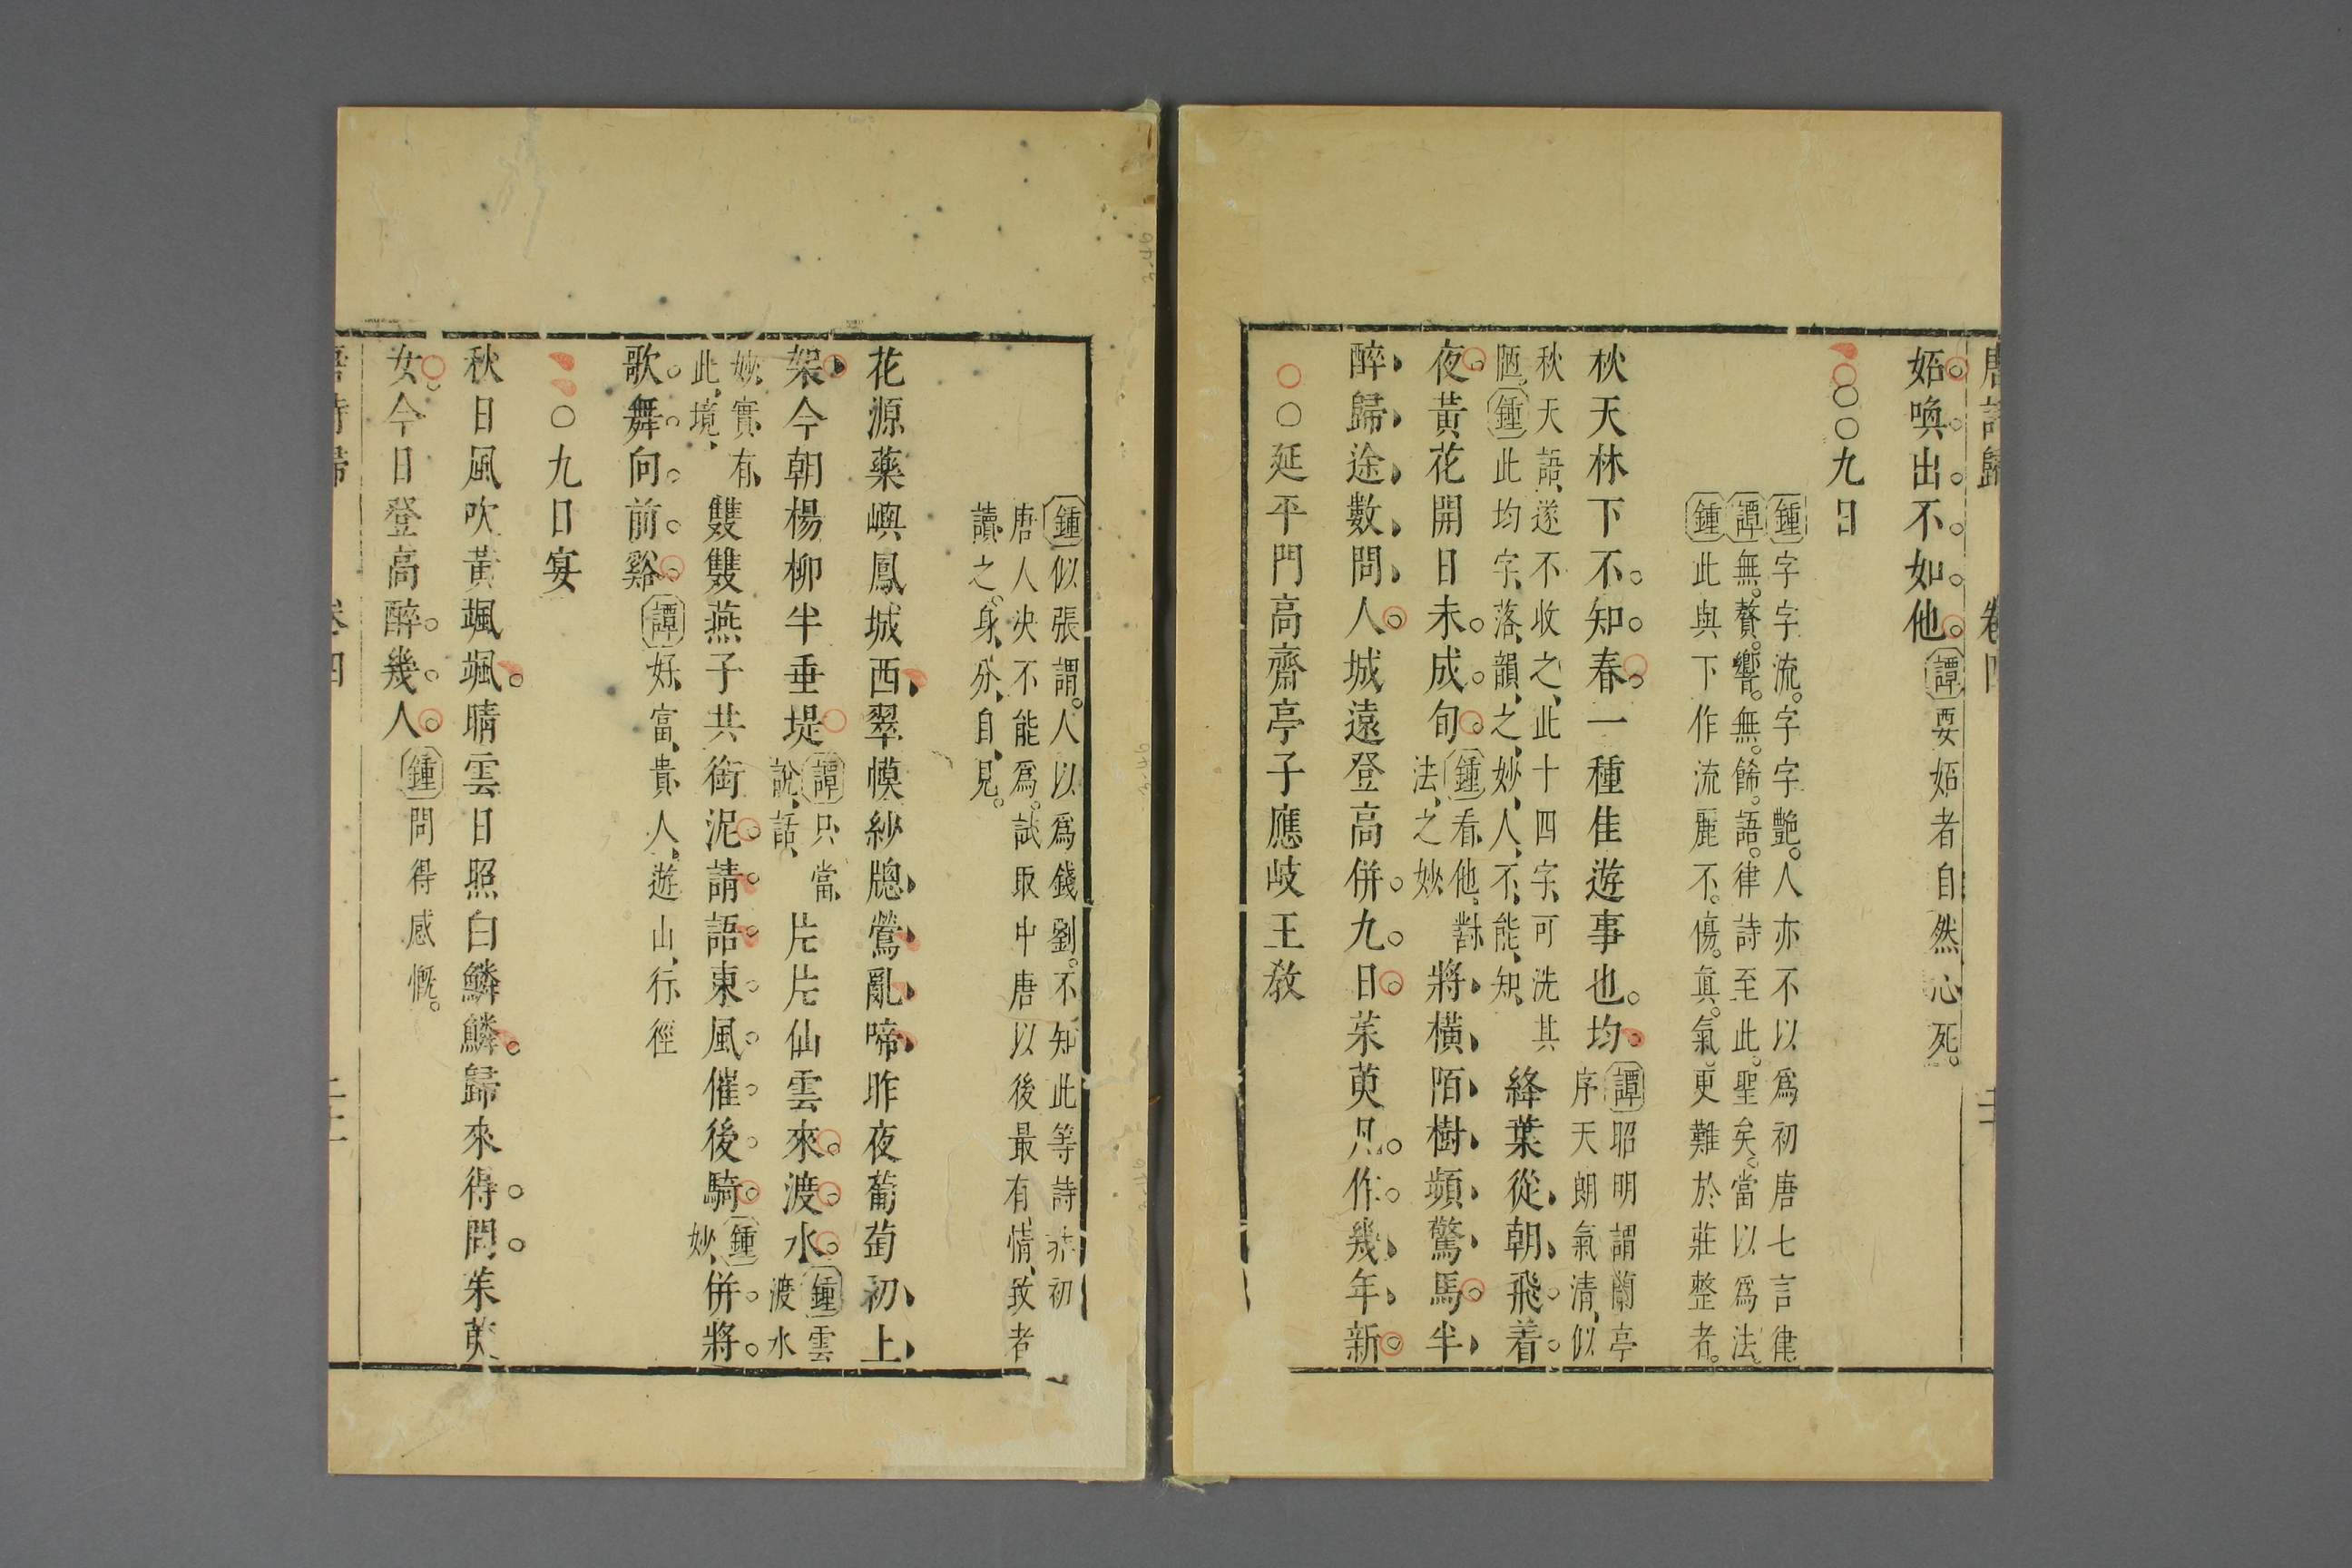 唐詩歸 卷四
妬喚出不如他譚要妬者自然心死
〇〇九日
鍾字字流字字艷人亦不以爲初唐七言律
譚無贅響無餙語律詩至此聖矣當以爲法
鍾此與下作流麗不傷眞氣更難於莊整者
秋天林下不知春一種佳遊事也均譚昭明謂蘭亭
序天朗氣清似
秋天語遂不收之此十四字可洗其
陋鍾此均字落韻之妙人不能知絳葉從朝飛着
夜黃花開日未成旬鍾看他對
法之妙將橫陌樹頻驚馬半
醉歸途數問人城遠登高併九日茱萸凡作幾年新
〇延平門高齋亭子應岐王教
鍾似張謂人以爲錢劉不知此等詩亦初
唐人决不能爲試取中唐以後最有情致者
讀之身分自見
花源藥嶼鳳城西翠幙紗牕鶯亂啼昨夜葡萄初上
架今朝楊柳半垂堤譚只當
說話片片仙雲來渡水鍾雲
渡水
妙實有
此境雙雙燕子共銜泥請語東風催後騎鍾
妙併將
歌舞向前谿譚好富貴人遊山行徑
〇九日宴
秋日風吹黃颯颯晴雲日照白鱗鱗歸來得問茱萸
女今日登高醉幾人鍾問得感慨
唐詩歸 卷四